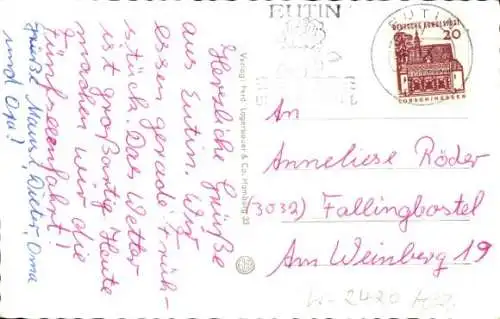 Herzliche Grüße
aus Eutin. Wir
essen gerade Früh-
stück. Das Wetter
ist großartig. Heute
machen wir die
Fünfseenfahrt!
Mami, Dieter, Oma
und Opa!
Verlag: Ferd. Lagerbauer & Co., Hamburg 33
EUTIN
EUTIN
DEUTSCHE BUNDESPOST
20
LORSCH/HESSEN
An
Anneliese Röder
(3032) Fallingbostel
Am Weinberg 19
W-2420